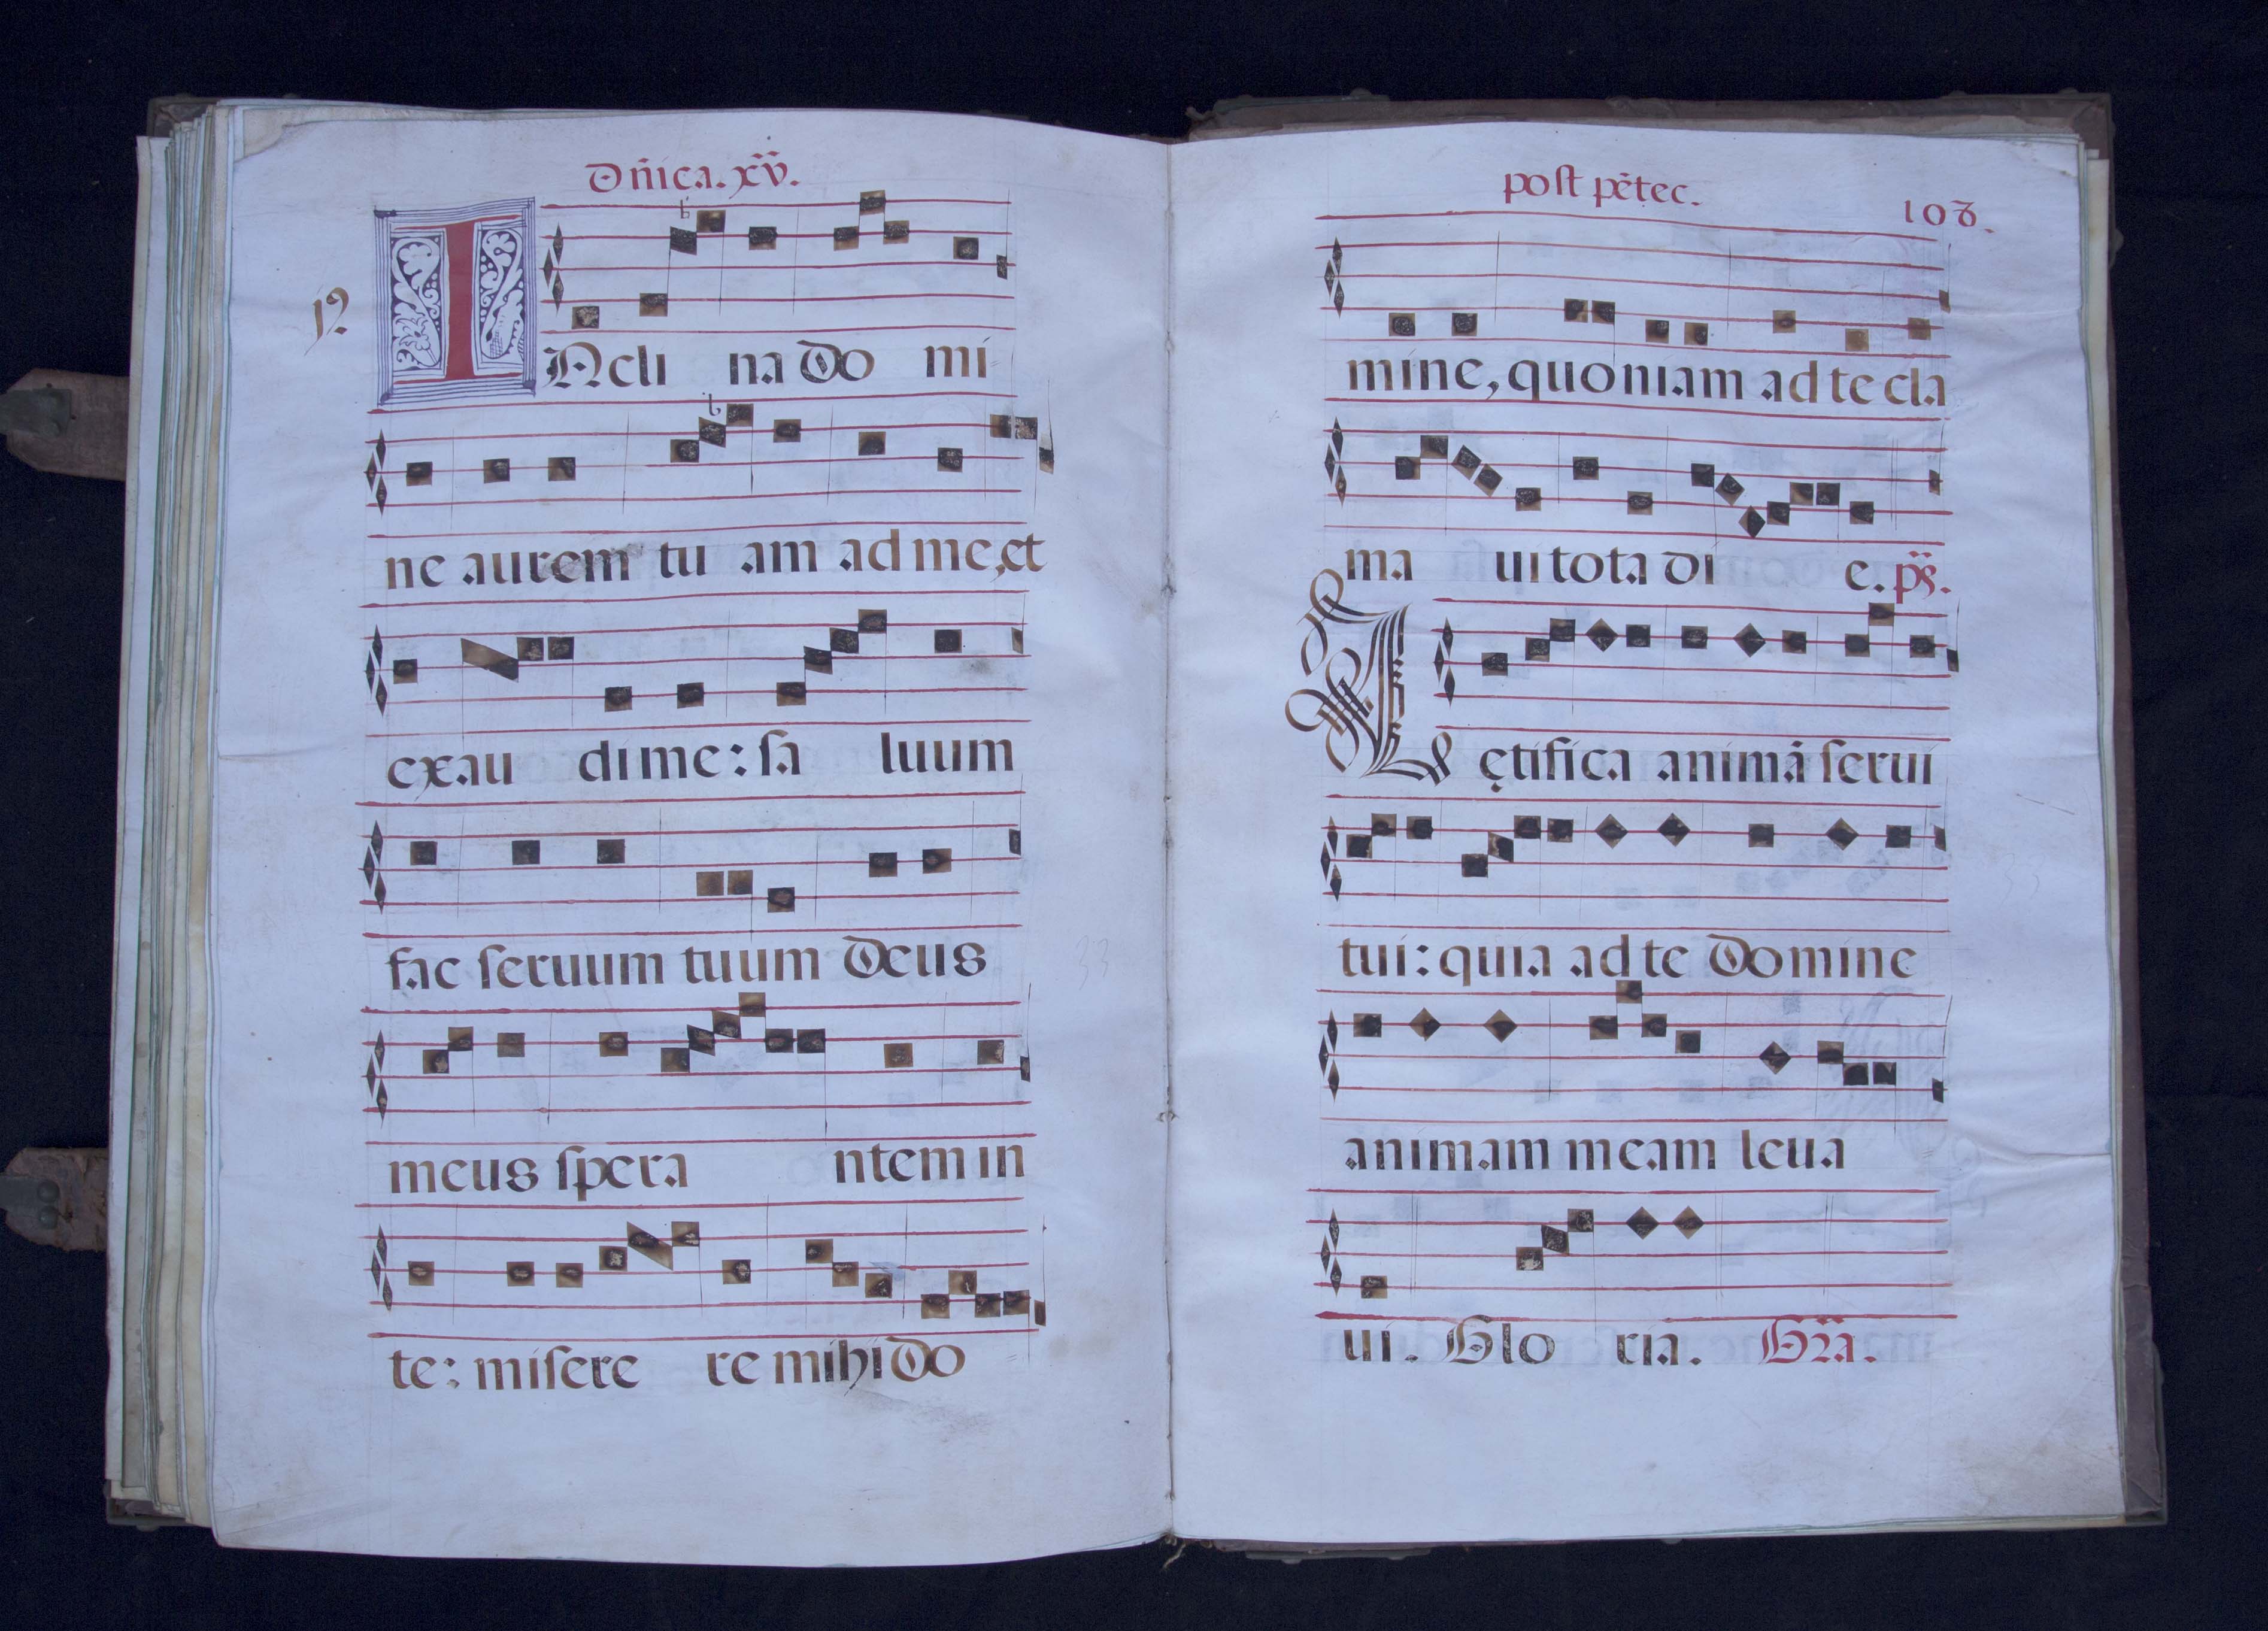 Dñica. xv.
INcli na Do mi
ne aurem tu am ad me, et
exau di me: ſa luum
fac ſeruum tuum Deus
meus ſpera ntem in
te: miſere re mihi Do
post pẽtec.
108.
mine, quoniam ad te cla
ma ui tota di e. ps.
Lętifica animã ſerui
tui: quia ad te Domine
animam meam leua
ui. Glo ria. Gr̃a.